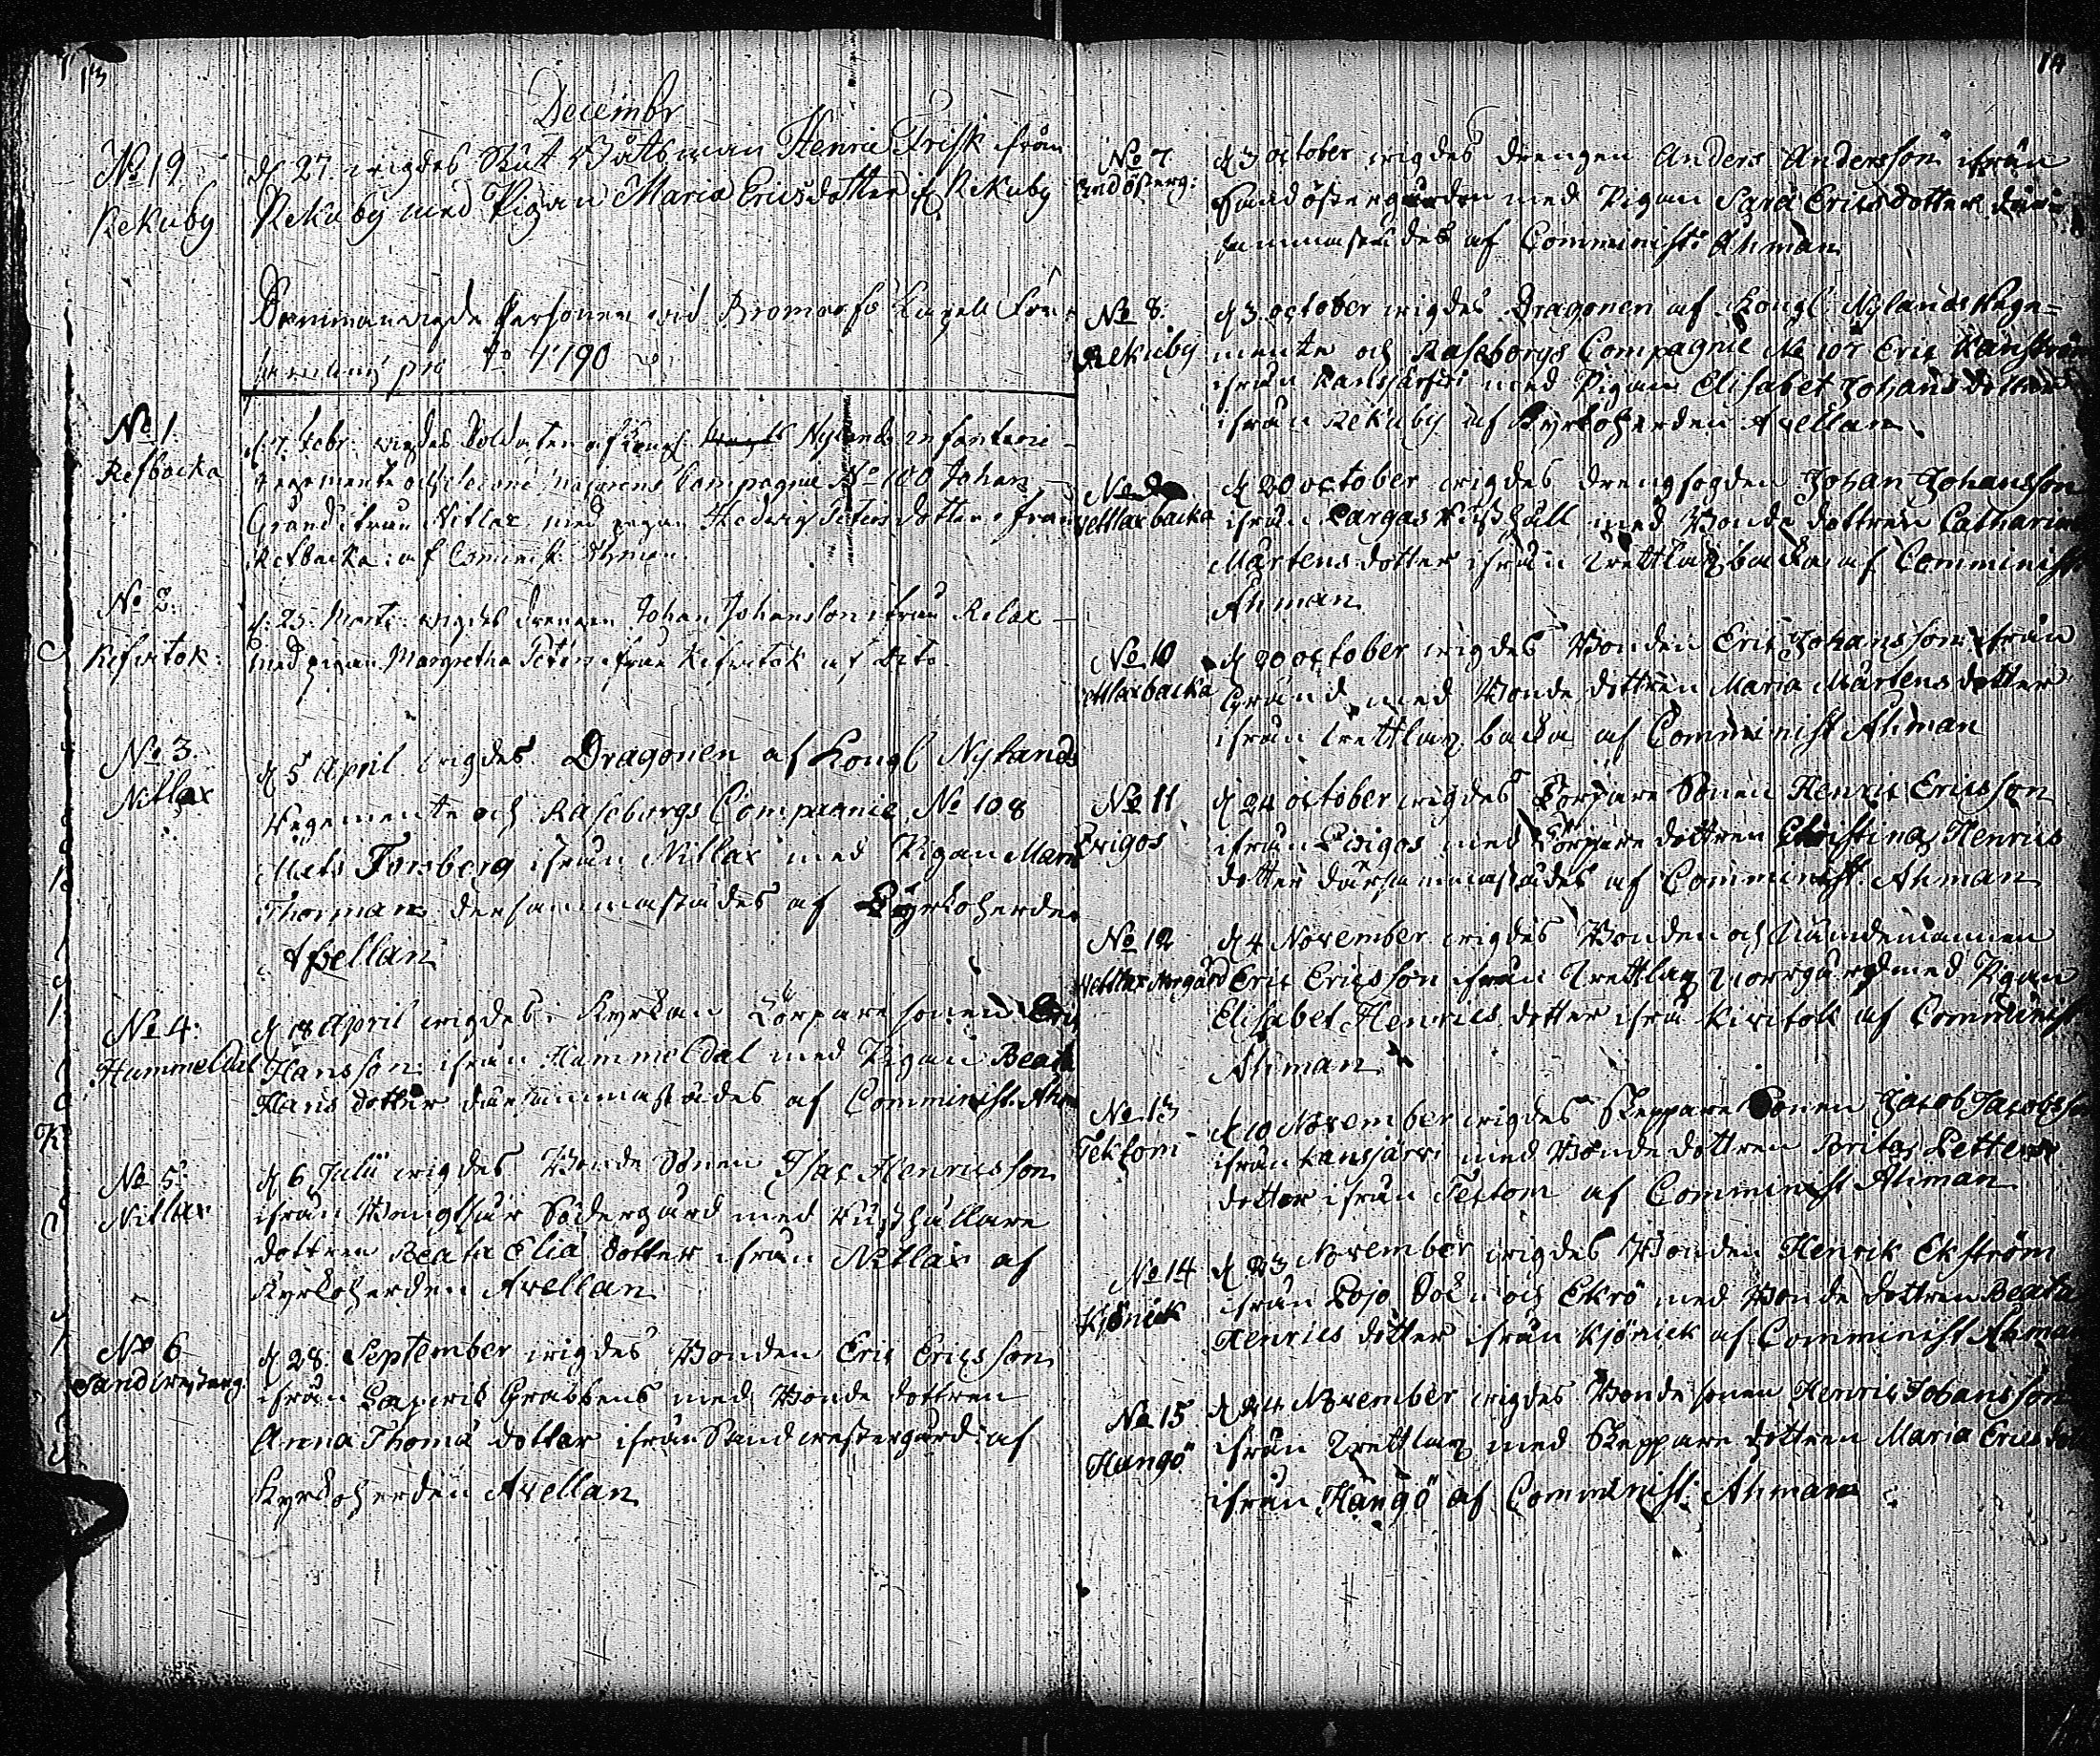 13
Decembr
No 19
Rekuby
d 27 wigdes Båtsman Henric Frisk ifrån
Rekuby med Pigan Maria Ericsdotter if Rekuby
Sammanvigde Personer vid Bromarfs Capell För-
samling pro Ao 1790
No 1
Refbacka
d. 7. Febr. wigdes Soldaten af Kongl. Nylands infanterie
regemente och Compagnie No 100 Johan
Grund ifrån Nitlax med pigan Hedwig Peters dotter ifrån
Refbacka: af Cominist. Ahman.
No 2.
Kifvitok:
d. 25. Marti. wigdes drengen Johan Johansson ifrån Rilax
med pigan Margretha Peters ifrån Kifvitok af Dito.
No 3.
Nitlax
d 5 April wigdes Dragonen af Kongl Nylands
Regemente och Raseborgs Compagnie No 108
Mats Forsberg ifrån Nitlax med Pigan Maria
Thorman dersammastädes af Kyrkoherden
Avellan
No 4:
Hummeldal
d 18 April wigdes i Kyrkan Torpare sonen Eric
Hansson ifrån Hummeldal med Pigan Beata
Hans dotter därsammastädes af Comminist. Ahm
No 5:
Nitlax
d 6 Julii wigdes Bonde Sonen Isac Henricsson
ifrån Södergård med Rusthållare
dottren Beata Eliæ dotter ifrån Nitlax af
Kyrkoherden Avellan
No 6
Sandwesterg:
d 28: September wigdes Bonden Eric Ericsson
ifrån Grabbens med Bonde dottren
Anna Thomæ dotter ifrån Sandwestergård: af
Kyrkoherden Avellan
14
No 7
Sandösterg:
d 3 October wigdes drengen Anders Andersson ifrån
Sandöstergården med Pigan Sara Ericsdotter där-
sammastädes af Comminist: Ahman
No 8:
Rekuby
d 3 October wigdes Dragonen af Kongl: Nylands Rege-
mente och Raseborgs Compagnie No 107 Eric
ifrån Kansjärfwi med Pigan Elisabet Johansdotter
ifrån Rekuby af Kyrkoherden Avellan
No 9
Wettlaxbacka
d 20 October wigdes drengfogden Johan Johansson
ifrån Pargas med Bonde dottren Catharina
Mårtens dotter ifrån Wettlaxbacka af Comminist
Ahman
No 10
Wettlaxbacka
d 20 October wigdes Bonden Eric Johansson ifrån
Grund med Bonde dottren Maria Mårtens dotter
ifrån Wettlax backa af Comminist Ahman
No 11
Ewigos
d 24 October wigdes Torpare Sonen Henric Ericsson
ifrån Ewigos med Torpare dottren Christina Henrics
dotter därsammastädes af Comminist. Ahman
No 12
Wettlax Norgård
d 4 November wigdes Bonden och Nämndemannen
Eric Ericsson ifrån Wettlax Norrgård med Pigan
Elisabet Henrics dotter ifrå Kivitok af Comminist
Ahman
No 13
Tektom
d 10 November wigdes Skeppare Sonen Jacob Jacobsson
ifrån Kansjärwi med Bonde dottren Brita Petters
dotter ifrån Tectom af Comminist Ahman
No 14
Kjönick
d 23 November wigdes Bonden Henrik Ekström
ifrån Pojo Sokn och Ekrö med Bonde dottren Beata
Henrics dotter ifrån Kjönick af Comminist Ahman
No 15
Hangö
d 24 November wigdes Bonde sonen Henric Johansson
ifrån Wettlax med Skeppare dottren Maria Ericsdott
ifrån Hangö af Comminist. Ahman